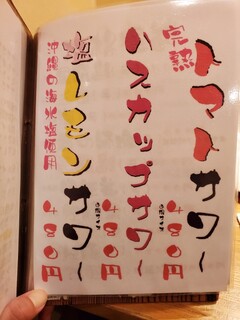 完熟
トマトサワー
+80円
ハスカップサワー
+80円
塩レモンサワー
沖縄の海水塩使用
+80円